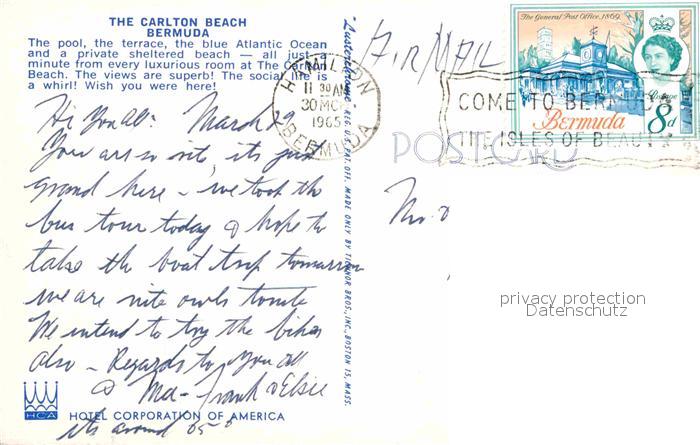 THE CARLTON BEACH
BERMUDA
The pool, the terrace, the blue Atlantic Ocean
and a private sheltered beach — all just a
minute from every luxurious room at The Carlton
Beach. The views are superb! The social life is
a whirl! Wish you were here!
Hi You All: March 29
Your are so rite, its just
grand here – we took the
bus tour today & hope to
take the boat trip tomorrow
we are nite owls tonite
We intend to try the bikes
also – Regards to you all
& Ma – Frank & Elsie
its around 65°
HCA
HOTEL CORPORATION OF AMERICA
"Lusterchrome" REG. U.S. PAT. OFF. MADE ONLY BY TICHNOR BROS., INC., BOSTON 15, MASS.
AIR MAIL
HAMILTON
11 30 AM
30 MCH
1965
BERMUDA
COME TO BERMUDA
THE ISLES OF BEAUTY
The General Post Office, 1869.
Postage
Bermuda
8d
POSTCARD
privacy protection
Datenschutz